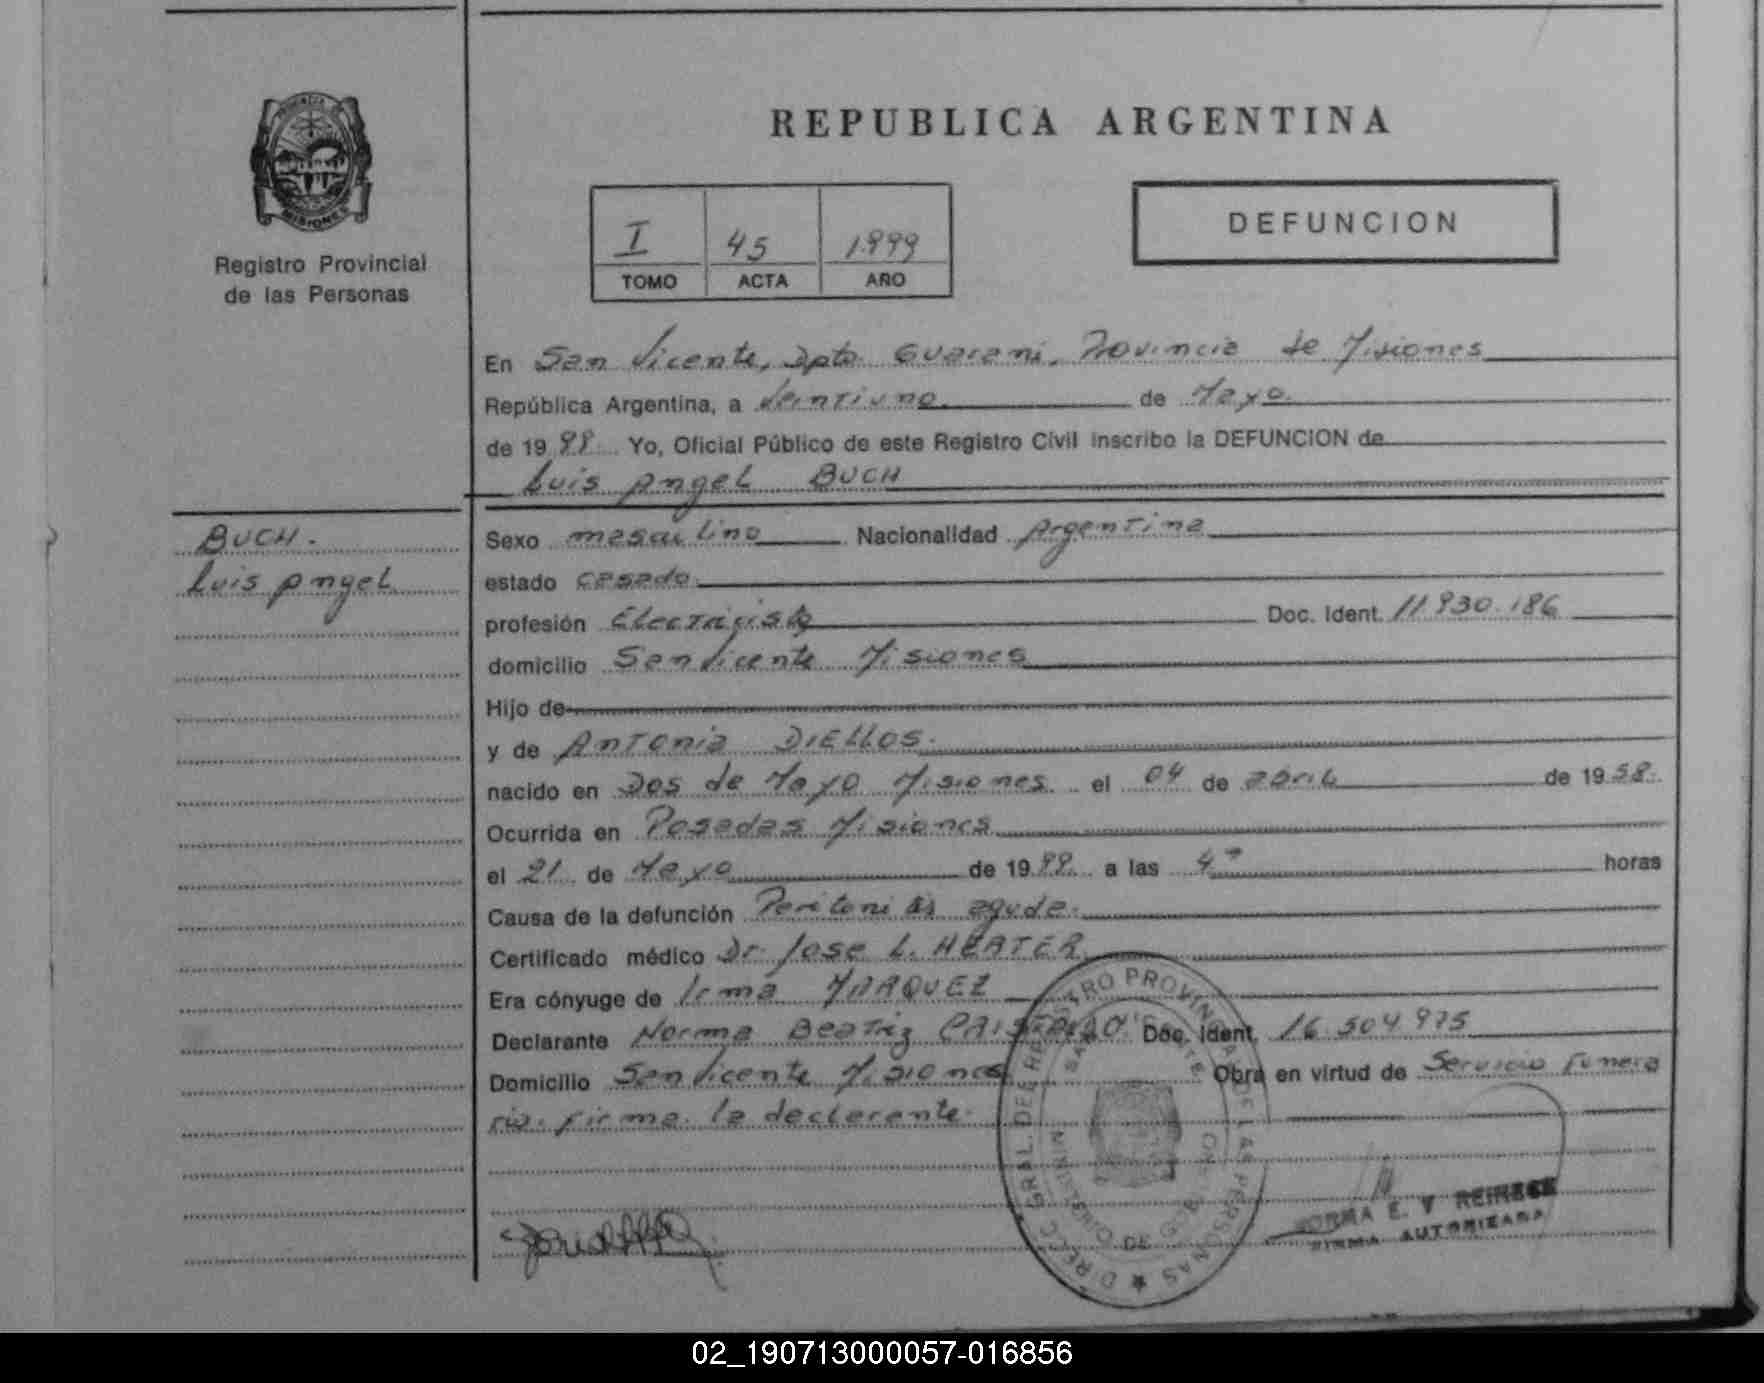 REPUBLICA ARGENTINA
MISIONES
Registro Provincial
de las Personas
I 45 1.999
TOMO ACTA AÑO
DEFUNCION
En San Vicente, Dpto. Guarani, Provincia de Misiones
República Argentina, a Veintiuno de Mayo
de 1999 Yo, Oficial Público de este Registro Civil inscribo la DEFUNCION de
Luis Angel BUCH
BUCH.
Luis Angel
Sexo masculino Nacionalidad Argentina
estado casado
profesión Electricista Doc. Ident. 11.930.186
domicilio San Vicente Misiones
Hijo de
y de Antonia DIELLOS.
nacido en Dos de Mayo Misiones el 04 de abril de 1958.
Ocurrida en Posadas Misiones
el 21 de Mayo de 1999 a las 4 horas
Causa de la defunción Peritonitis aguda.
Certificado médico Dr. Jose L. HERTER
Era cónyuge de Irma MARQUEZ
Declarante Norma Beatriz Doc. Ident. 16.504.975
Domicilio San Vicente Misiones Obra en virtud de Servicio Funera
rio. firma la declarante.
DIRECC. GRAL. DEL REGISTRO PROVINCIAL DE LAS PERSONAS
NORMA E. V. REIRECK
FIRMA AUTORIZADA
02_190713000057-016856